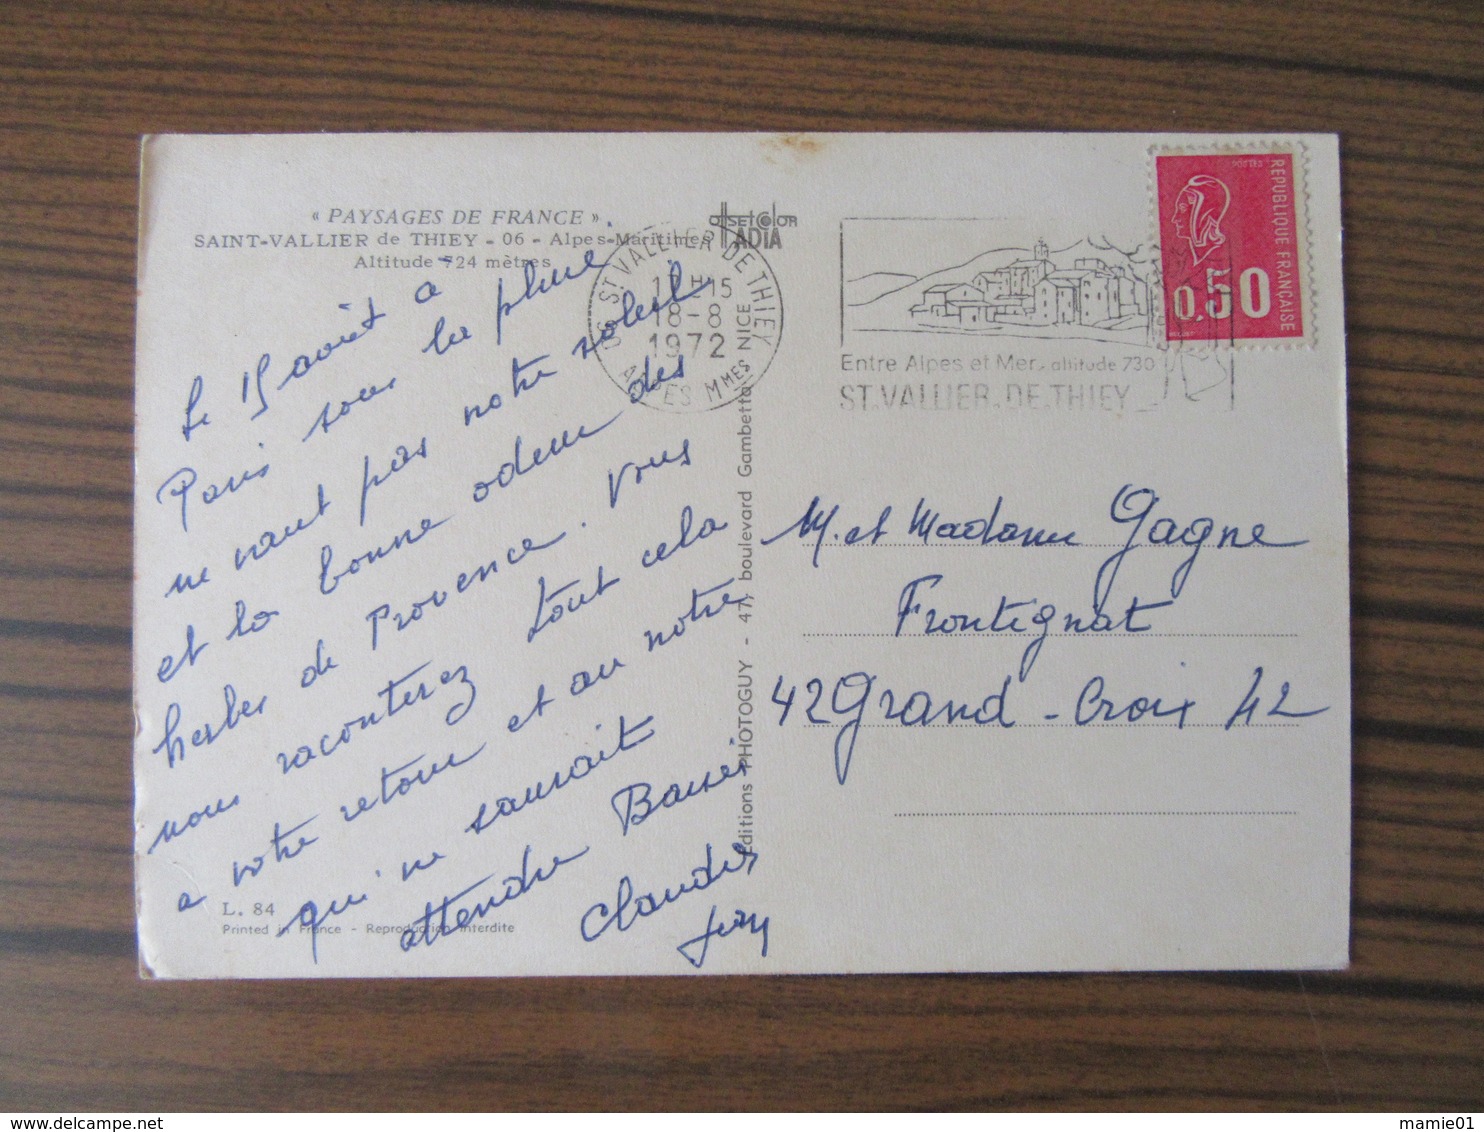 « PAYSAGES DE FRANCE »
SAINT-VALLIER de THIEY - 06 - Alpes-Maritimes
Altitude 724 mètres
offset color
IADIA
06 ST VALLIER DE THIEY
17 H 15
18 - 8
1972
ALPES Mmes NICE
Entre Alpes et Mer. altitude 730
ST.VALLIER.DE.THIEY
POSTES
REPUBLIQUE FRANÇAISE
0,50
Le 15 août a
Paris sous la pluie
ne vaut pas notre soleil
et la bonne odeur des
herbes de Provence. Vous
nous raconterez tout cela
a votre retour et au notre
qui ne saurait
attendre Baisers
Claudes
M. et Madame Gagne
Frontignat
42 Grand-Croix 42
Editions PHOTOGUY - 47, boulevard Gambetta
L. 84
Printed in France - Reproduction interdite
mamie01